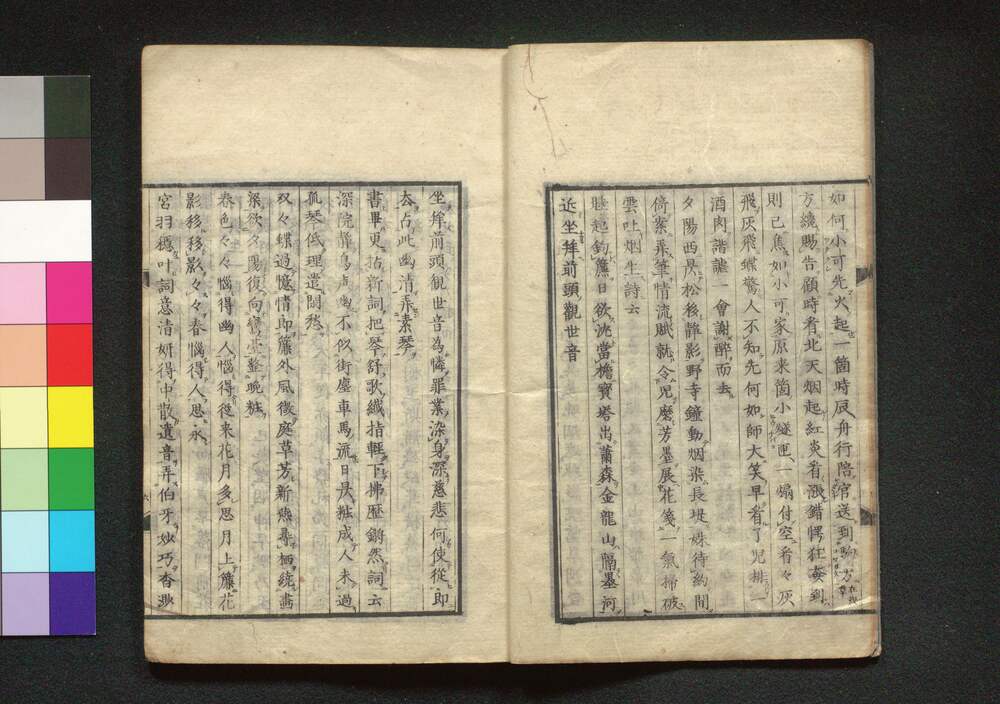 如何小可先火起一箇時辰舟行陪官送到駒方
方纔賜告顧時看北天烟起紅炎看漲錯愕狂奔到
則已焦如小可家原来箇小燧匣一煽付空看々灰
飛灰飛蝶驚人不知先何如師大笑早看了児排一
酒肉諧謔一會謝醉而去
夕陽西昃松後静影野寺鐘動烟染長堤姝待約間
倚案乗筆情流賦就令児磨芳墨展花箋一氣掃破
雲吐烟生詩云
睡起鈎簾日欲沈當檐寶塔出蕭森金龍山隔墨河
近坐拜前頭觀世音
坐拜前頭観世音為憐罪業染身深慈悲何使從即
去占此幽清弄素琴
書畢更拈新詞把琴舒歌纖指輕下拂歴鏘然詞云
深院静鳥声幽不似街塵車馬流日昃粧成人未過
孤琴低理遣閑愁
双々蝶過憶情郎簾外風微庭草芳新燕尋栖繞畫
梁欲夕陽復向鸞臺整晩粧
春色々々惱得幽人惱得從来花月多思月上簾花
影移移影々々春惱得人思永
宮羽穏叶詞意清妍得中散遺音弄伯牙妙巧杳渺